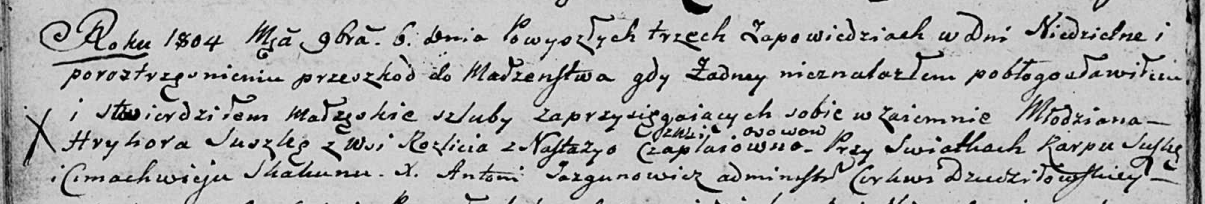 Roku 1804 Mca 9bra. 6. dnia Po wyszłych trzech Zapowiedziach w dni Niedzielne i
poroztrzęsnieniu przeszkod do Małzenstwa gdy Żadney nieznalazłem pobłogosławiłem
i stwierdziłem Małzęskie szluby zaprzysięgaiących sobie wzaiemnie Młodziana
Hryhora Suszkę z Wsi Rozlicia z Nastazyo Czaplaiowno. Przy Swiatkach Karpu Suszkę
i Cimachwieju Skakunu. X. Antoni Jazgunowicz administr Cerkwi Dzedziłowskiey